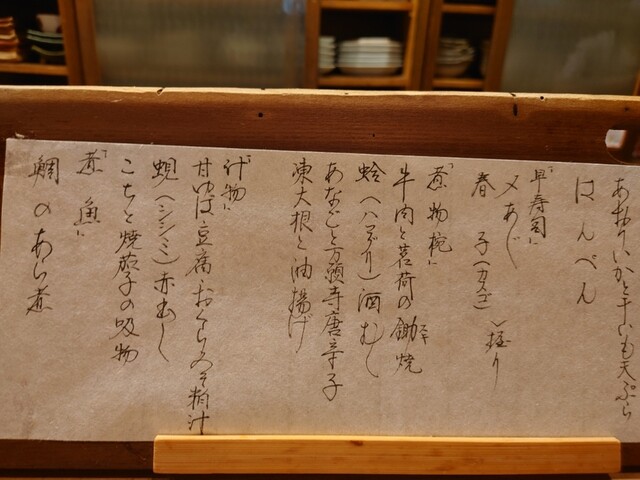 あおりいかと干いも天ぷら
はんぺん
「早寿司」
〆あじ
春子(カスゴ) 〉握り
「煮物椀」
牛肉と茗荷の鋤焼
蛤(ハマグリ)酒むし
あなごと万願寺唐辛子
凍大根と油揚げ
「汁物」
甘ゆば豆腐 おくらみそ粕汁
蜆(シジミ)赤出し
こちと焼茄子の吸物
「煮魚」
鯛のあら煮